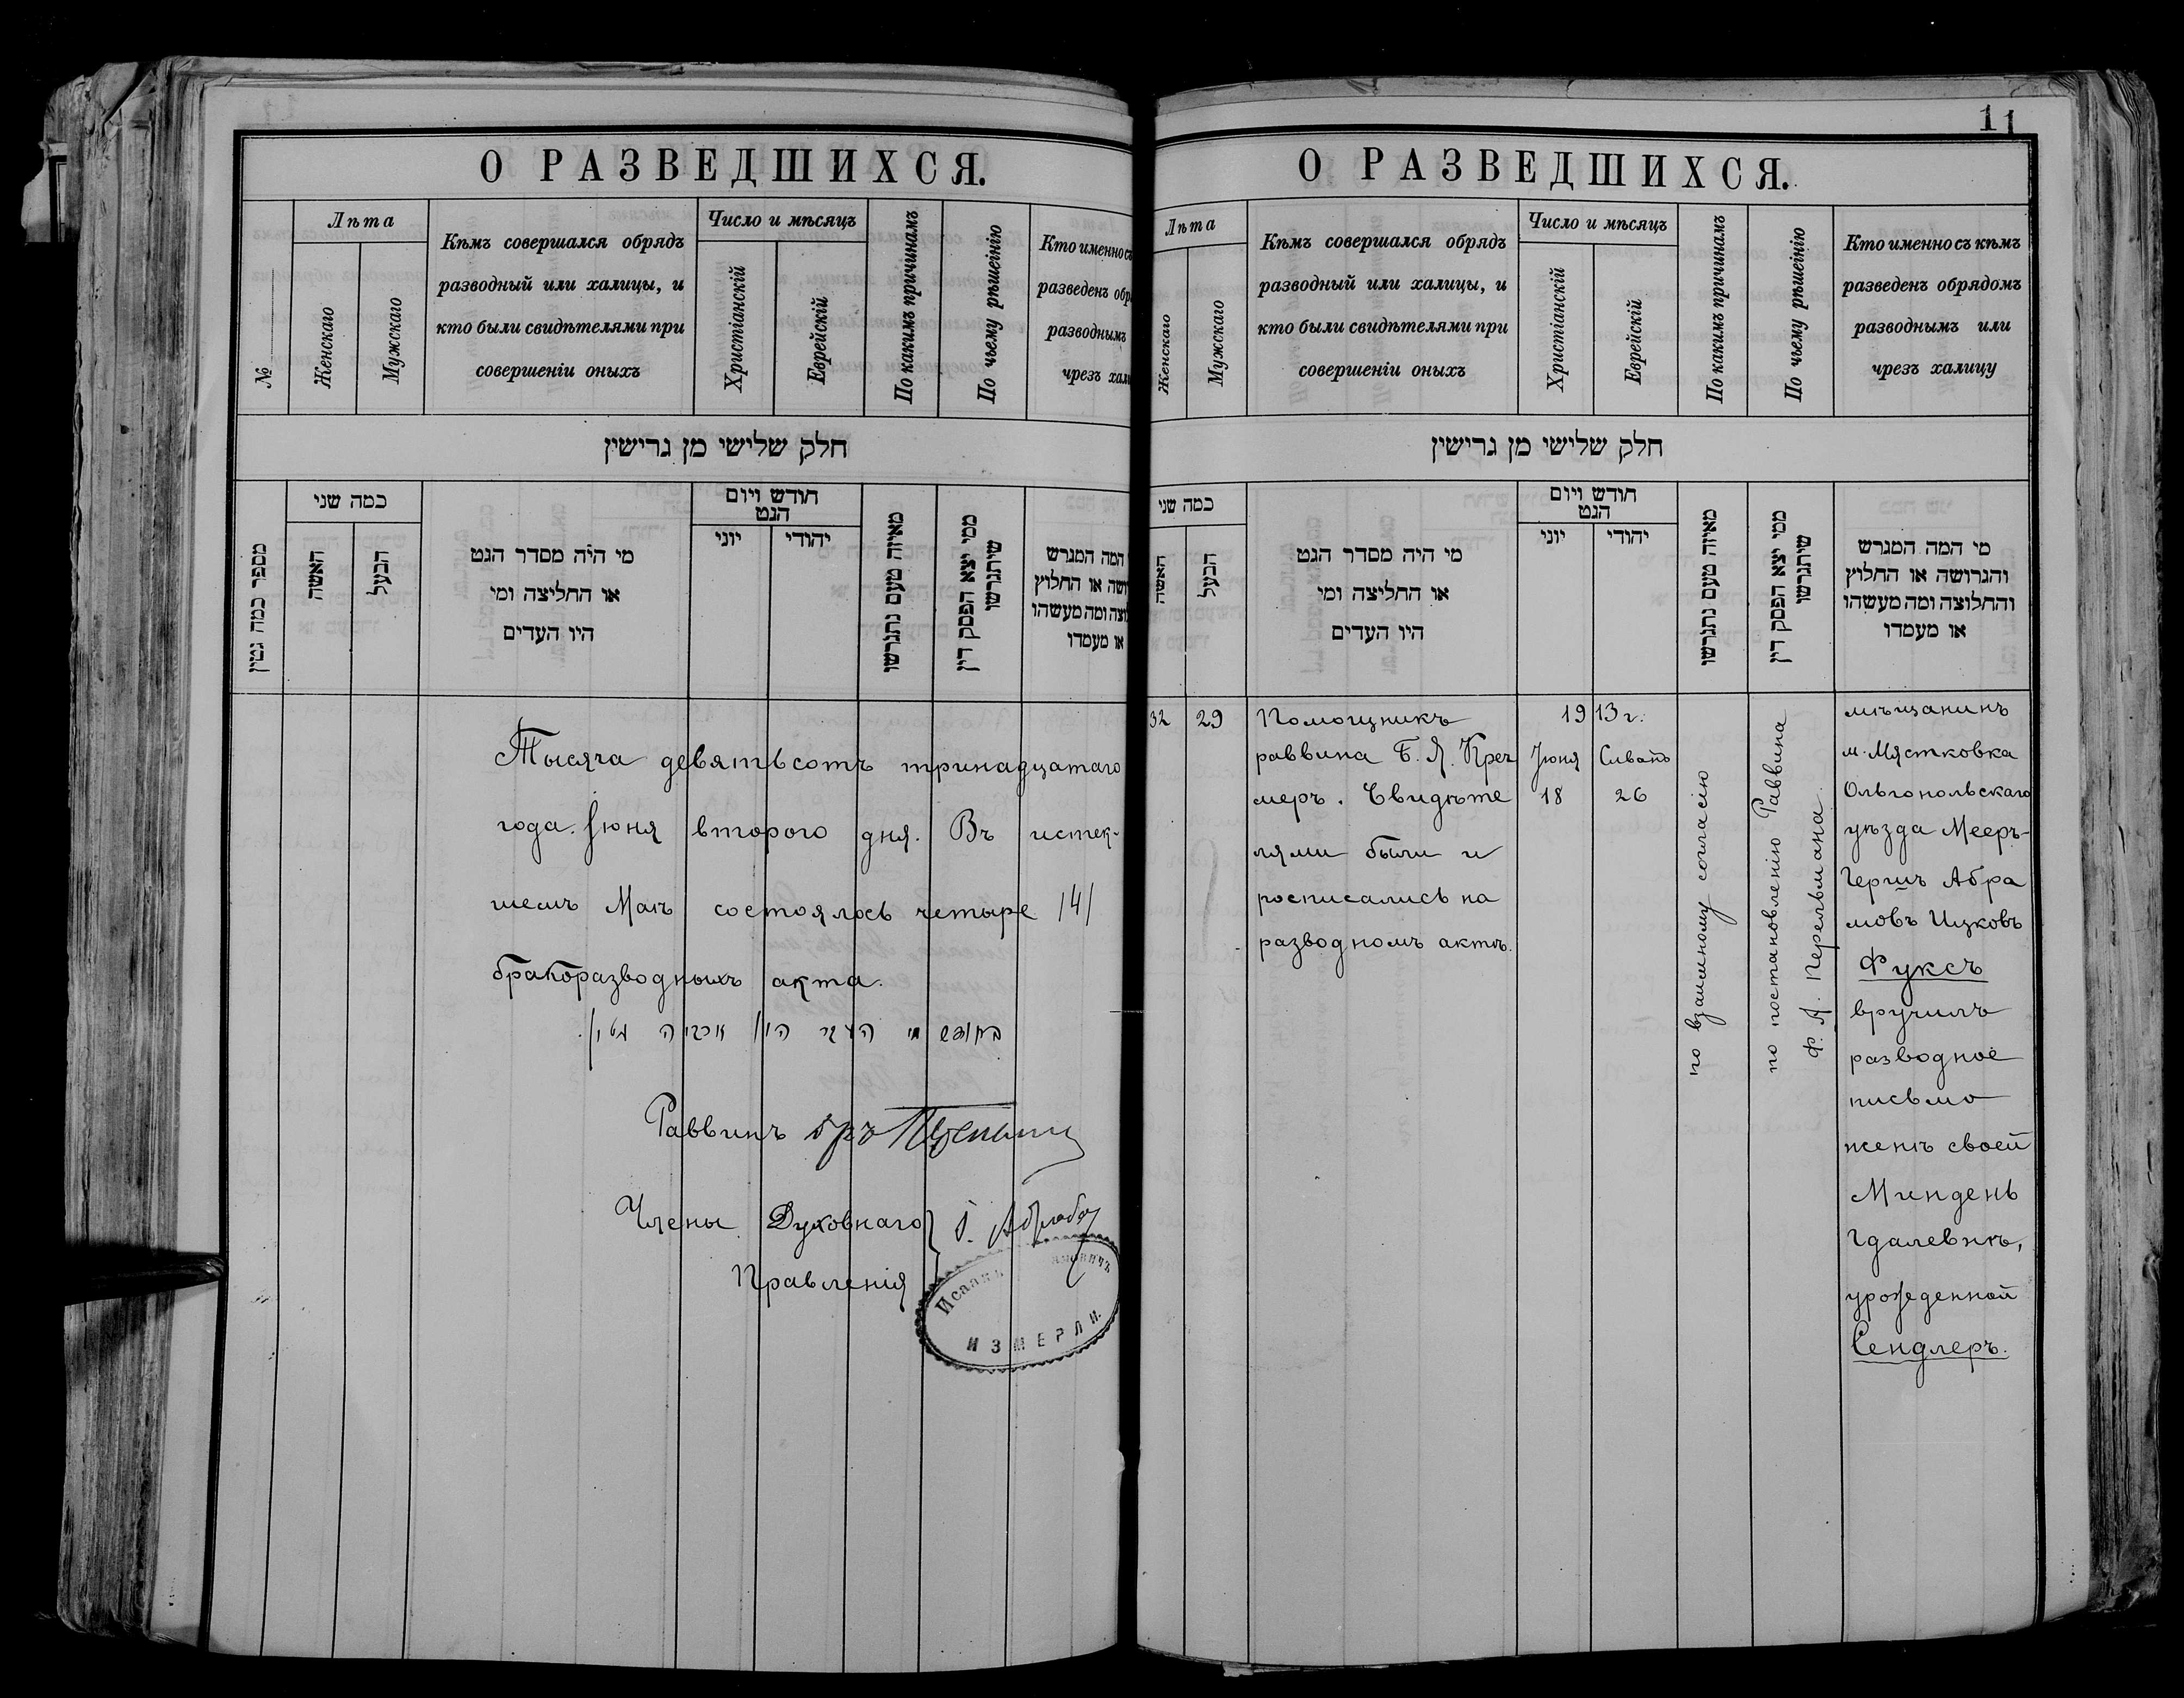 О РАЗВЕДШИХСЯ.
№
Лѣта
Женскаго
Мужскаго
Кѣмъ совершался обрядъ
разводный или халицы, и
кто были свидѣтелями при
совершеніи оныхъ
Число и мѣсяцъ
Христіанскій
Еврейскій
По какимъ причинамъ
По чьему рѣшеінію
Кто именно съ
разведенъ обр
разводнымъ
чрезъ хал
חלק שלישי מן גרישין
מספר כמה גטין
כמה שני
האשה
הבעל
מי היה מסדר הגט
או החליצה ומי
היו העדים
חודש ויום
הגט
יוני
יהודי
מאיזה טעם נתגרשו
ממי יצא הפסק דין
שיתגרשו
המה המגרש
ושה או החלוץ
וצה ומה מעשהו
או מעמדו
Тысяча девятьсотъ тринадцатаго
года. Іюня второго дня. Въ истек-
шемъ Маѣ состоялось четыре /4/
бракоразводныхъ акта.
Раввинъ
Члены Духовнаго
Правленія
Исаакъ
ИЗМЕРЛИ.
11
О РАЗВЕДШИХСЯ.
Лѣта
Женскаго
Мужскаго
Кѣмъ совершался обрядъ
разводный или халицы, и
кто были свидѣтелями при
совершеніи оныхъ
Число и мѣсяцъ
Христіанскій
Еврейскій
По какимъ причинамъ
По чьему рѣшеінію
Кто именно съ кѣмъ
разведенъ обрядомъ
разводнымъ или
чрезъ халицу
חלק שלישי מן גרישין
כמה שני
האשה
הבעל
מי היה מסדר הגט
או החליצה ומי
היו העדים
חודש ויום
הגט
יוני
יהודי
מאיזה טעם נתגרשו
ממי יצא הפסק דין
שיתגרשו
מי המה המגרש
והגרושה או החלוץ
והחלוצה ומה מעשהו
או מעמדו
32
29
Помощникъ
раввина Б. Я. Креч
меръ. Свидѣте
лями были и
росписались на
разводномъ актѣ.
1913 г.
Іюня
18
Сиванъ
26
по взаимному согласію
по постановленію Раввина
Ф. А. Перельмана
мѣщанинъ
м. Мястковка
Ольгопольскаго
уѣзда Мееръ-
Гершъ Абра
мовъ Ицковъ
Фуксъ
вручилъ
разводное
письмо
женѣ своей
Миндень
Гдалевнѣ,
урожденной
Сендлеръ.